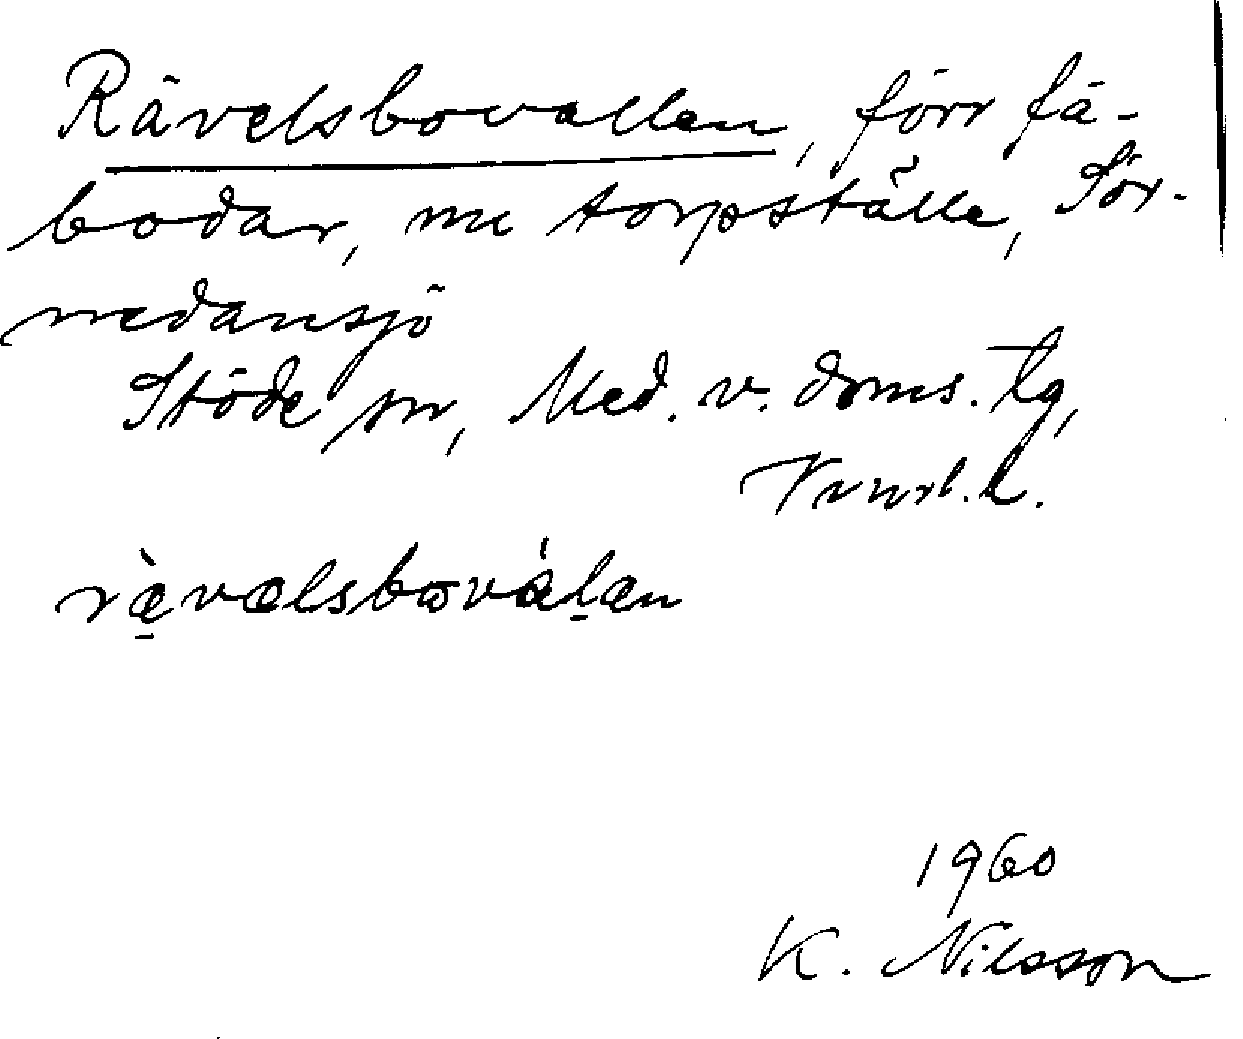 Rävelsbovallen, förr fä-
bodar, nu torpställe, Sör-
nedansjö
Stöde sn, Med. v. doms. tg,
Vnorl. l.
rævəlsbovàlən
1960
K. Nilsson